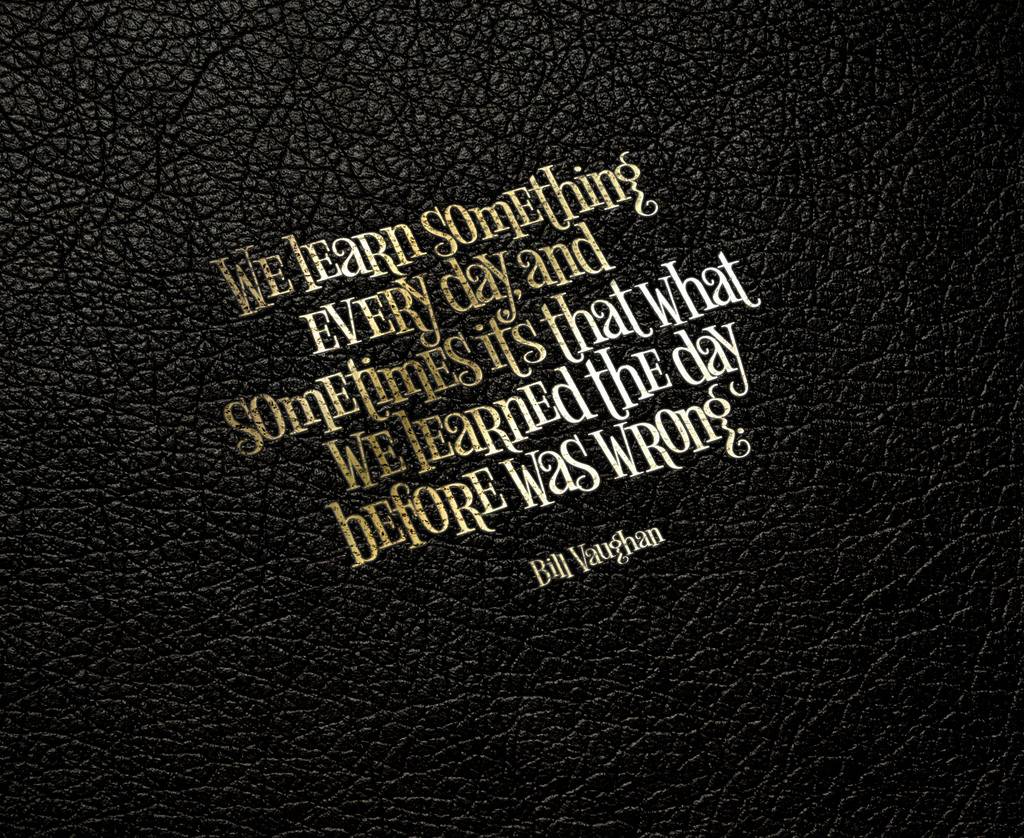 We learn something
every day, and
sometimes it's that what
we learned the day
before was wrong.
Bill Vaughan